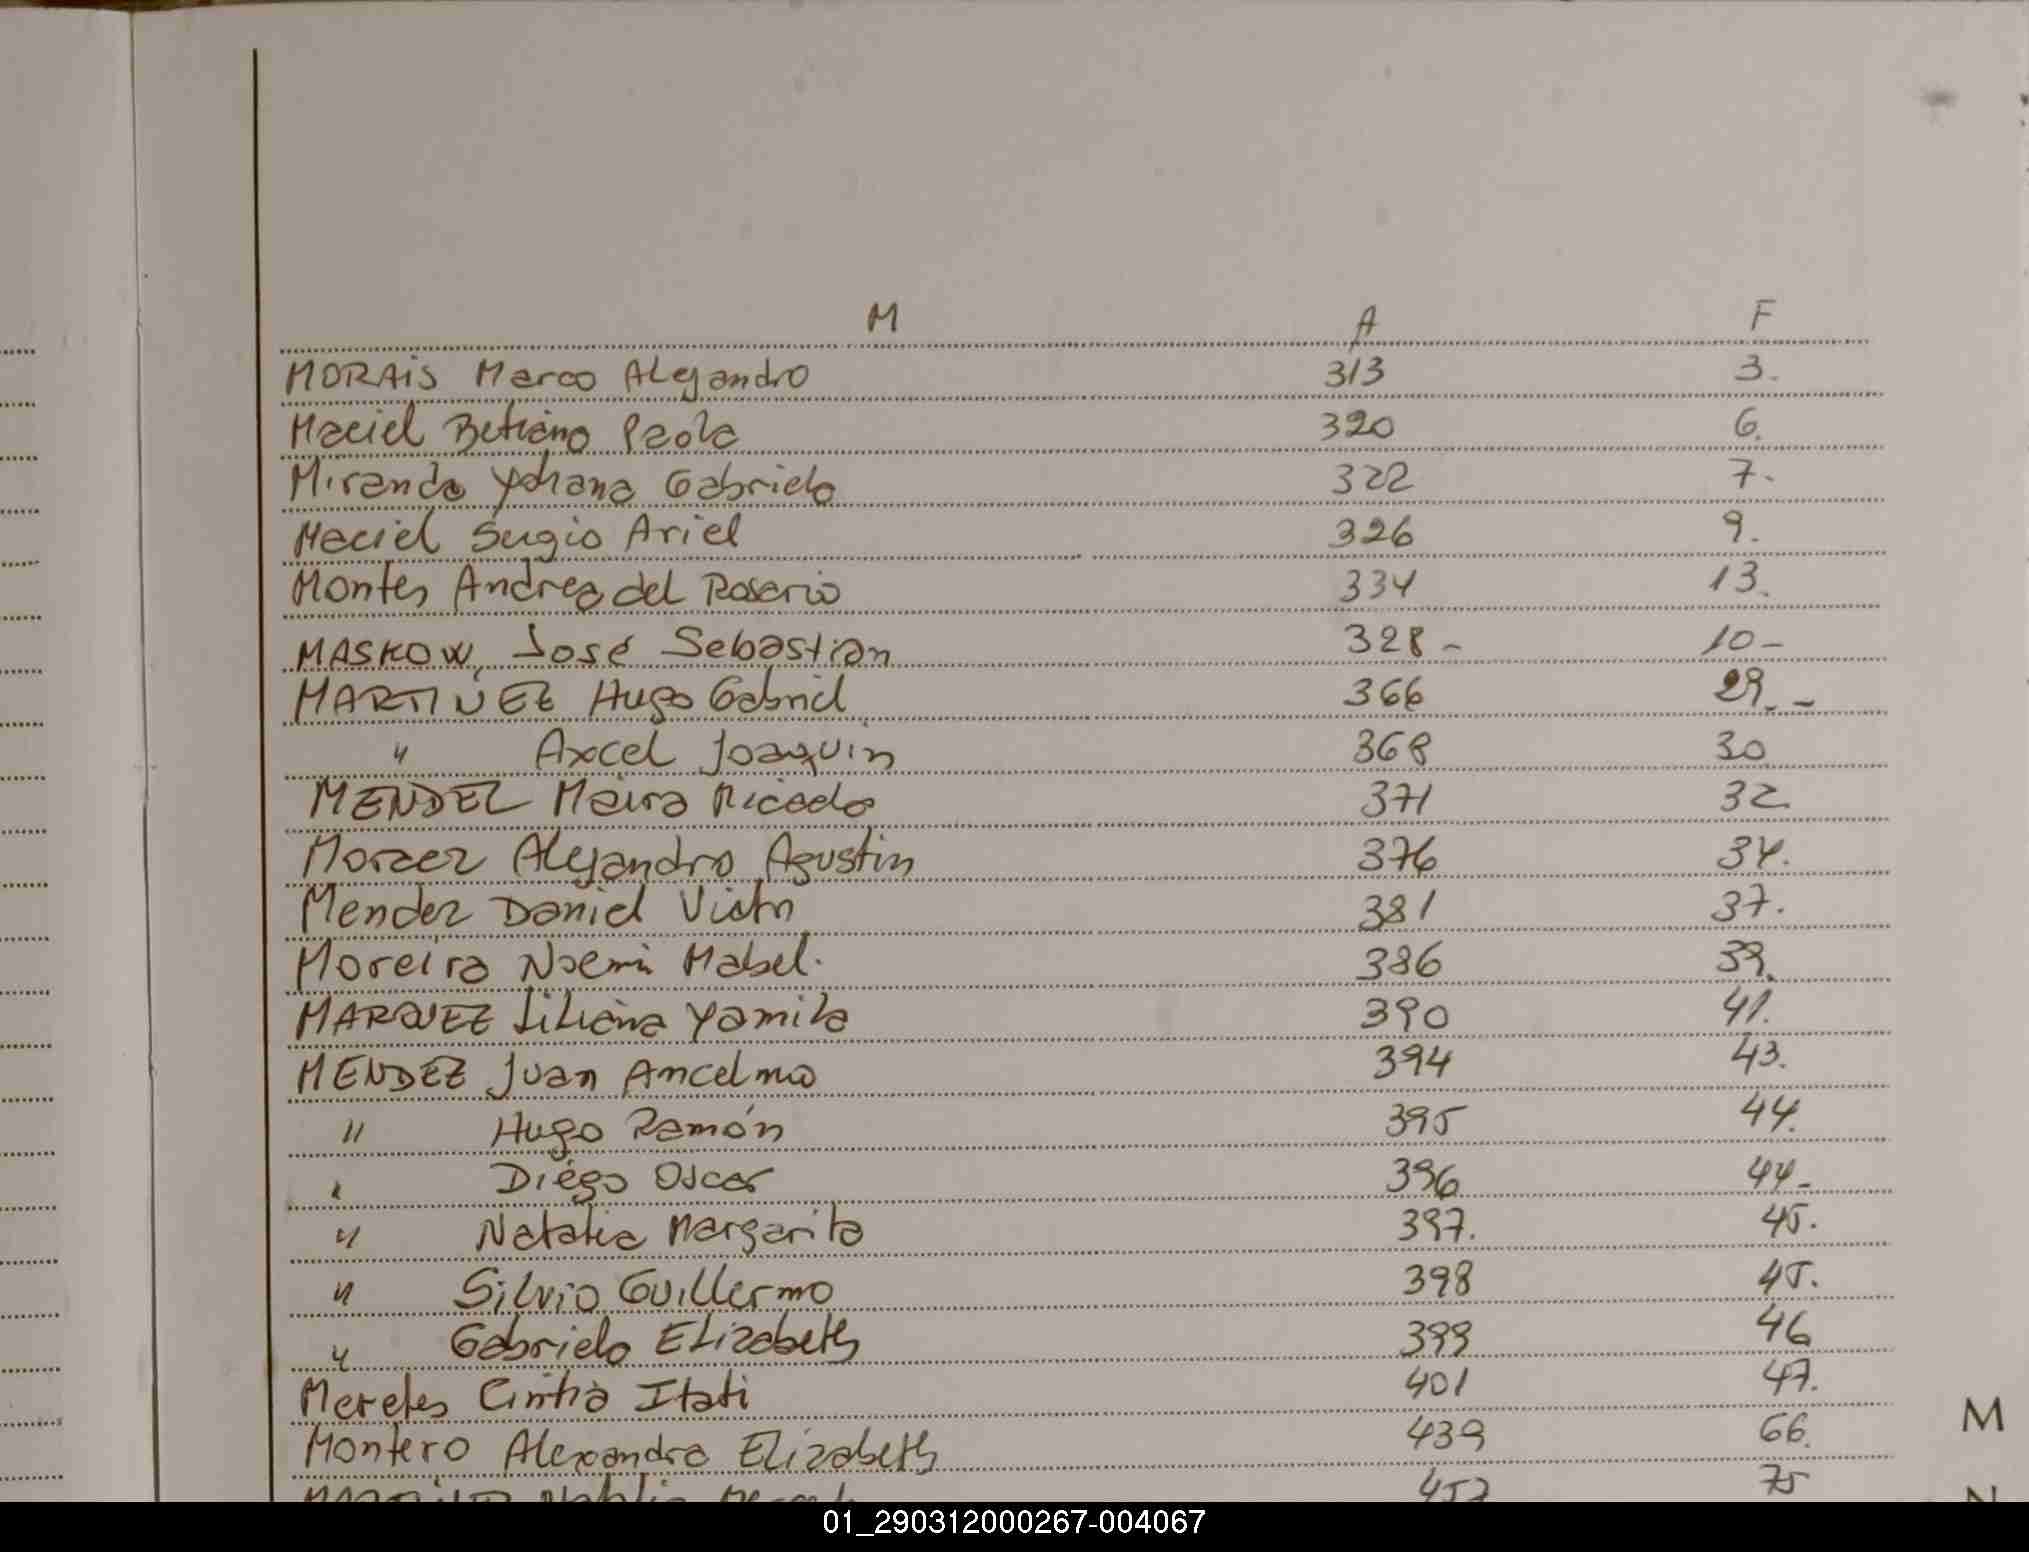 M A F
MORAIS Marco Alejandro 313 3.
Maciel Betiana Paola 320 6.
Miranda Yohana Gabriela 322 7.
Maciel Sergio Ariel 326 9.
Montes Andrea del Rosario 334 13.
MASKOW, José Sebastian 328- 10-
MARTINEZ Hugo Gabriel 366 29.-
" Axcel Joaquin 368 30
MENDEZ Maira Micaela 371 32
Moraez Alejandro Agustin 376 34.
Mendez Daniel Victor 381 37.
Moreira Noemi Mabel. 386 39.
MARQUEZ Liliana Yamila 390 41.
MENDEZ Juan Ancelmo 394 43.
" Hugo Ramón 395 44.
" Diego Oscar 396 44-
" Natalia Margarita 397. 45.
" Silvio Guillermo 398 45.
" Gabriela Elizabeth 399 46
Mereles Cintia Itati 401 47.
Montero Alexandra Elizabeth 439 66.
75
M
N
01_290312000267-004067